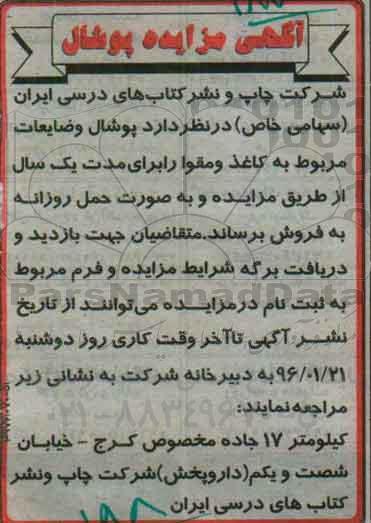 آگهی مزایده پوشال
شرکت چاپ و نشر کتاب‌های درسی ایران
(سهامی خاص) درنظردارد پوشال وضایعات
مربوط به کاغذ ومقوا رابرای‌مدت یک سال
از طریق مزایده و به صورت حمل روزانه
به فروش برساند.متقاضیان جهت بازدید و
دریافت برگه شرایط مزایده و فرم مربوط
به ثبت نام درمزایده می‌توانند از تاریخ
نشر آگهی تاآخر وقت کاری روز دوشنبه
۹۶/۰۱/۲۱ به دبیرخانه شرکت به نشانی زیر
مراجعه‌نمایند:
کیلومتر ۱۷ جاده مخصوص کرج - خیابان
شصت و یکم(داروپخش)شرکت چاپ ونشر
کتاب های درسی ایران
ParsNamadData